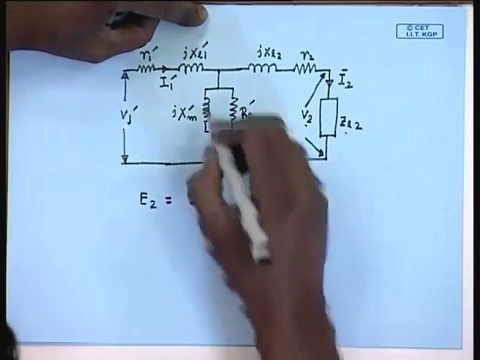 © CET
I.I.T. KGP
r₁′ jXℓ₁′ jXℓ₂ r₂
I₁′ I̅₂
V₁′ jX′m V₂ Zℓ₂
E₂ =